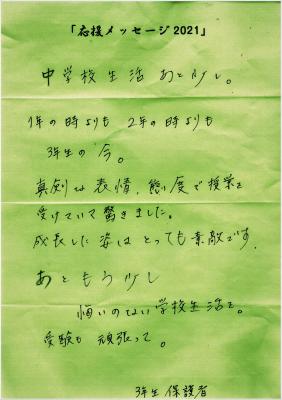 「応援メッセージ2021」
中学校生活 あと少し。
1年の時よりも 2年の時よりも
3年生の今。
真剣な表情、態度で授業を
受けていて驚きました。
成長した姿は とっても素敵です。
あともう少し
悔いのない学校生活を。
受験も 頑張って。
3年生 保護者